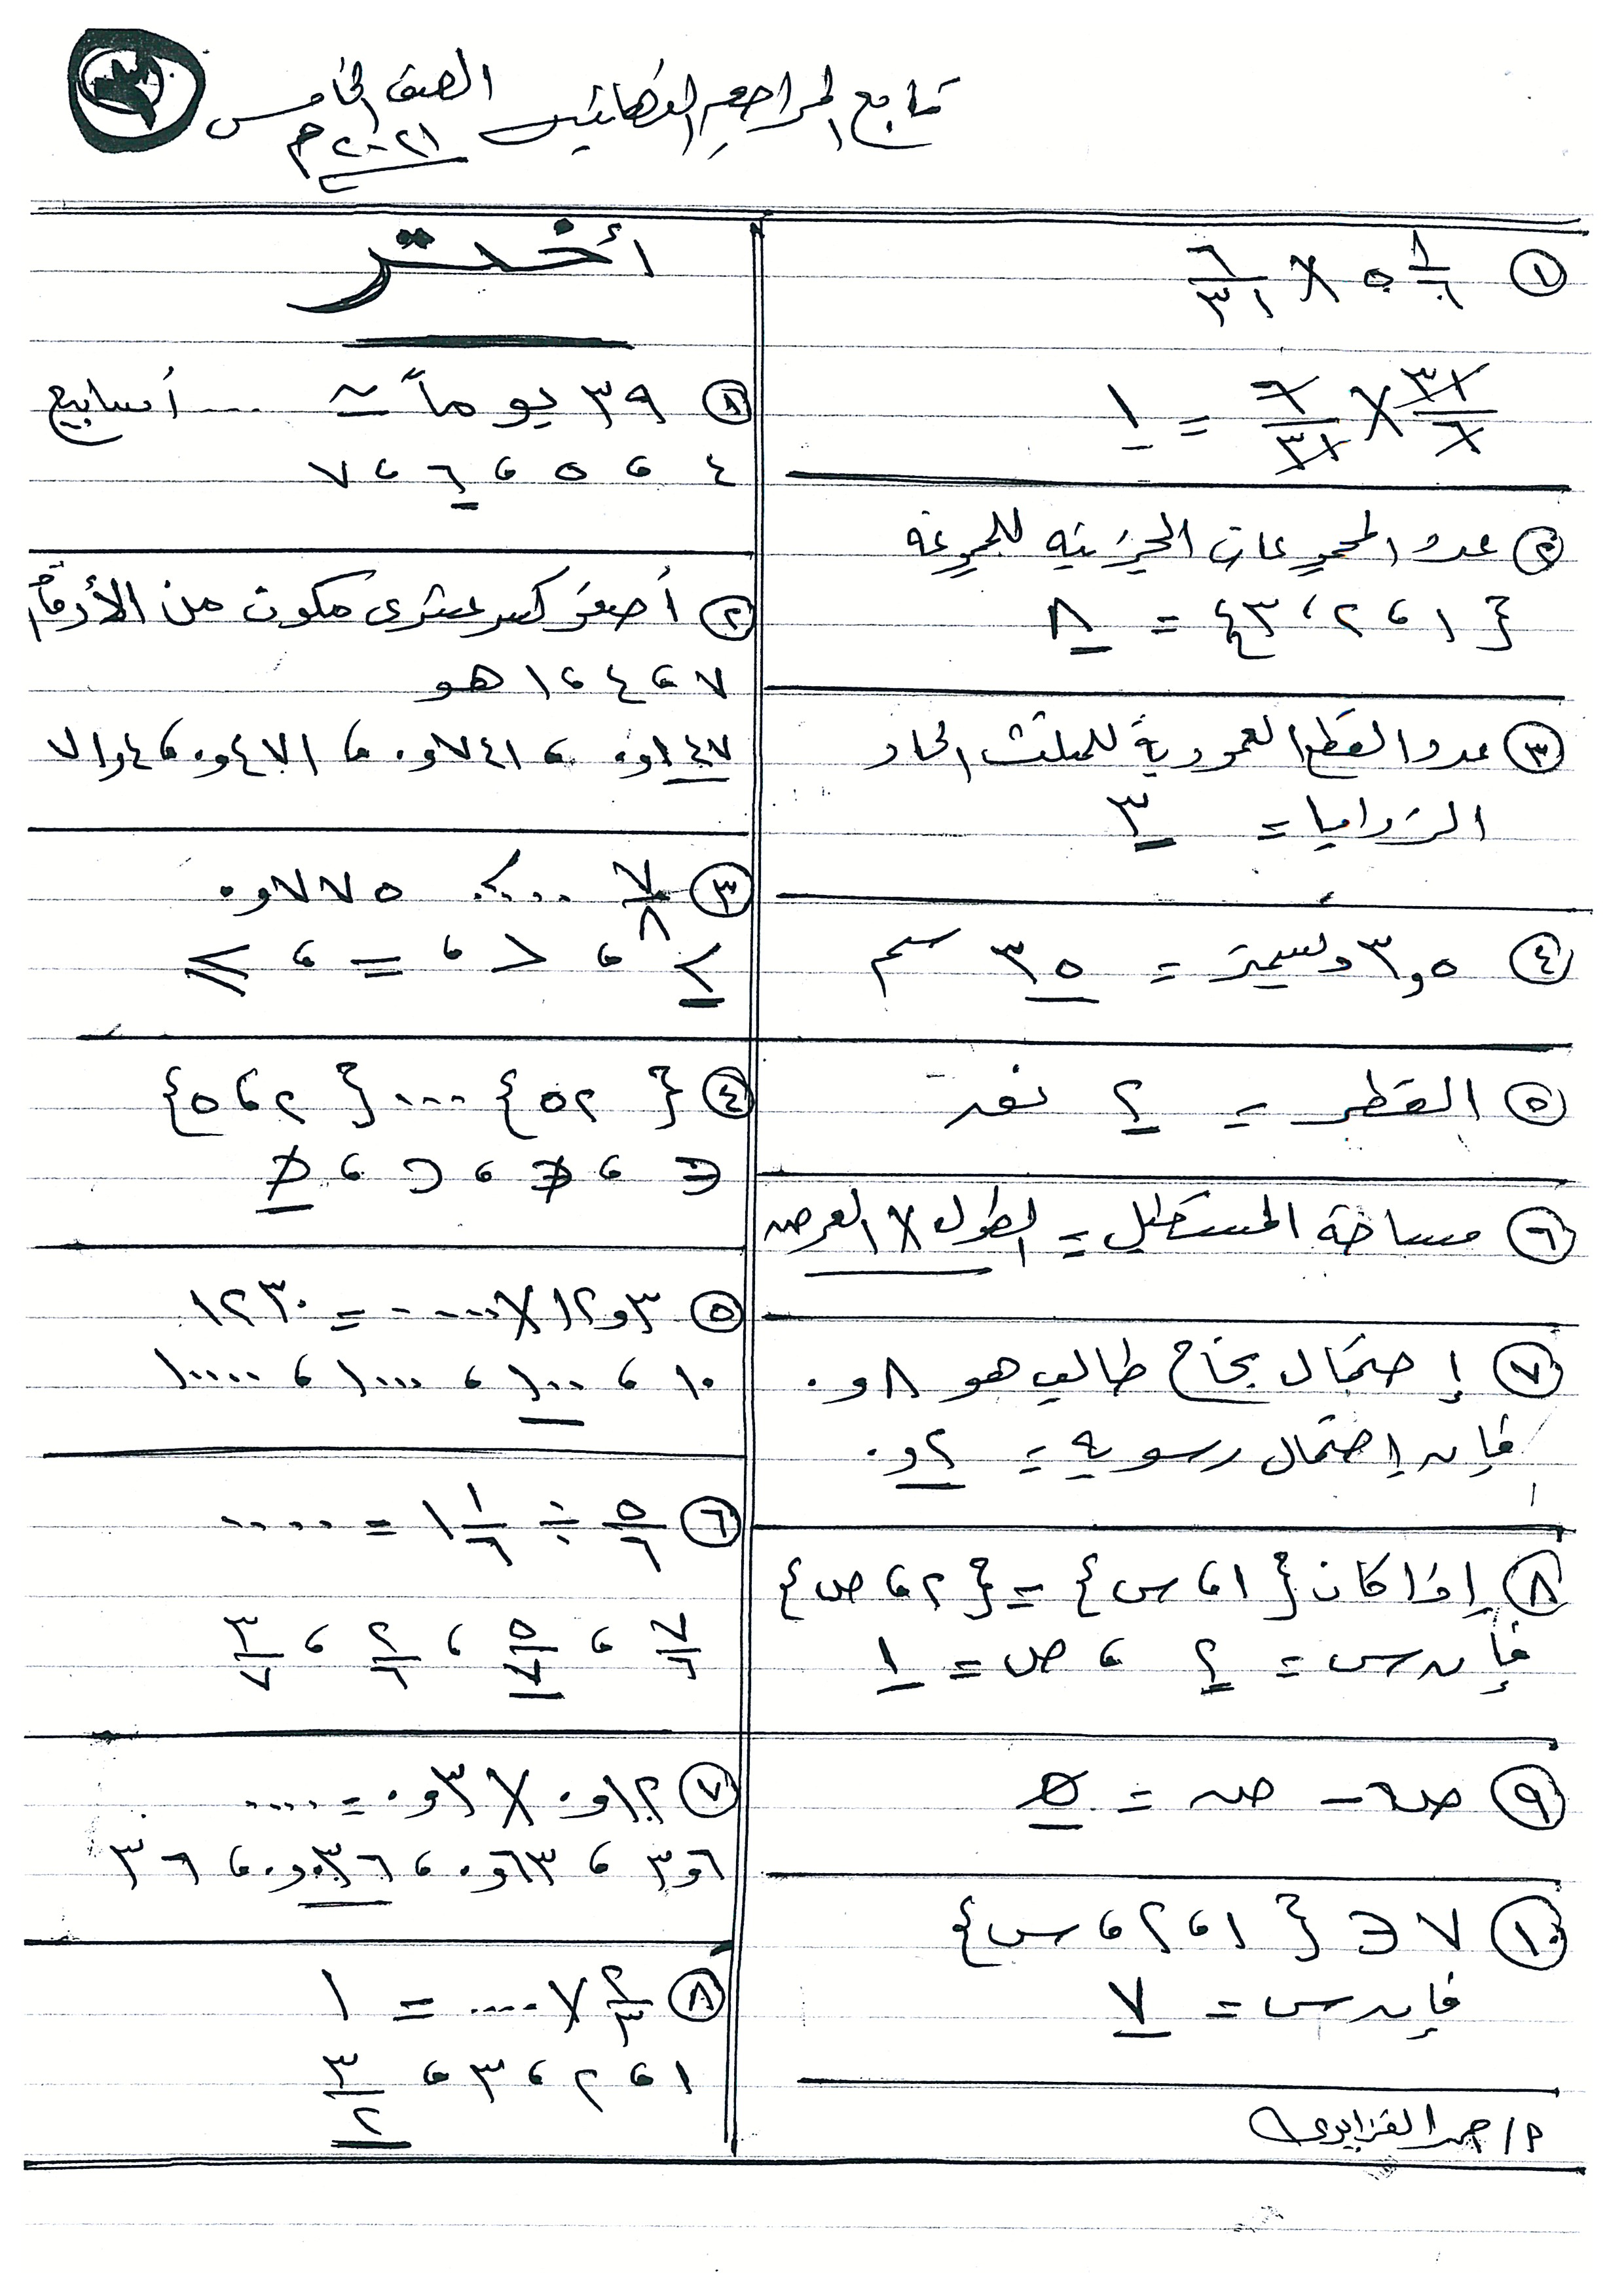 تابع المراجعة النهائية الصف الخامس
٢٠٢١م
① ٥ ١/٦ × ٦/٣١
٣١/٦ × ٦/٣١ = ١
② عدد المجموعات الجزئية للمجموعة
{١، ٢، ٣} = ٨
③ عدد القطع العمودية للمثلث الحاد
الزوايا = ٣
④ ٣,٥ ديسمتر = ٣٥ سم
⑤ القطر = ٢ نق
⑥ مساحة المستطيل = الطول × العرض
⑦ إحتمال نجاح طالب هو ٠,٨
فإن إحتمال رسوبه = ٠,٢
⑧ إذا كان {١، س} = {٢، ص}
فإن س = ٢ ، ص = ١
⑨ ص - ص = ∅
⑩ ٧ ∈ {١، ٢، س}
فإن س = ٧
أختر
① ٣٩ يوماً ≃ .... أسابيع
٤ ، ٥ ، ٦ ، ٧
② أصغر كسر عشرى مكون من الأرقام
٧ ، ٤ ، ١ هو
٠,١٤٧ ، ٠,٧٤١ ، ٠,٤٧١ ، ٧١,٤
③ ٧/٨ ..>.. ٠,٧٧٥
> ، < ، = ، ≥
④ {٥٢} .... {٢ ، ٥}
∈ ، ∉ ، ⊂ ، ⊄
⑤ ١٢,٣ × ..... = ١٢٣٠
١٠ ، ١٠٠ ، ١٠٠٠ ، ١٠٠٠٠
⑥ ٥/٦ ÷ ١ ١/٦ = ....
٧/٦ ، ٥/٧ ، ٢/٦ ، ٣/٧
⑦ ٠,١٢ × ٠,٣ = ....
٣,٦ ، ٠,٦٣ ، ٠,٠٣٦ ، ٣٦
⑧ ٢/٣ × .... = ١
١ ، ٢ ، ٣ ، ٣/٢